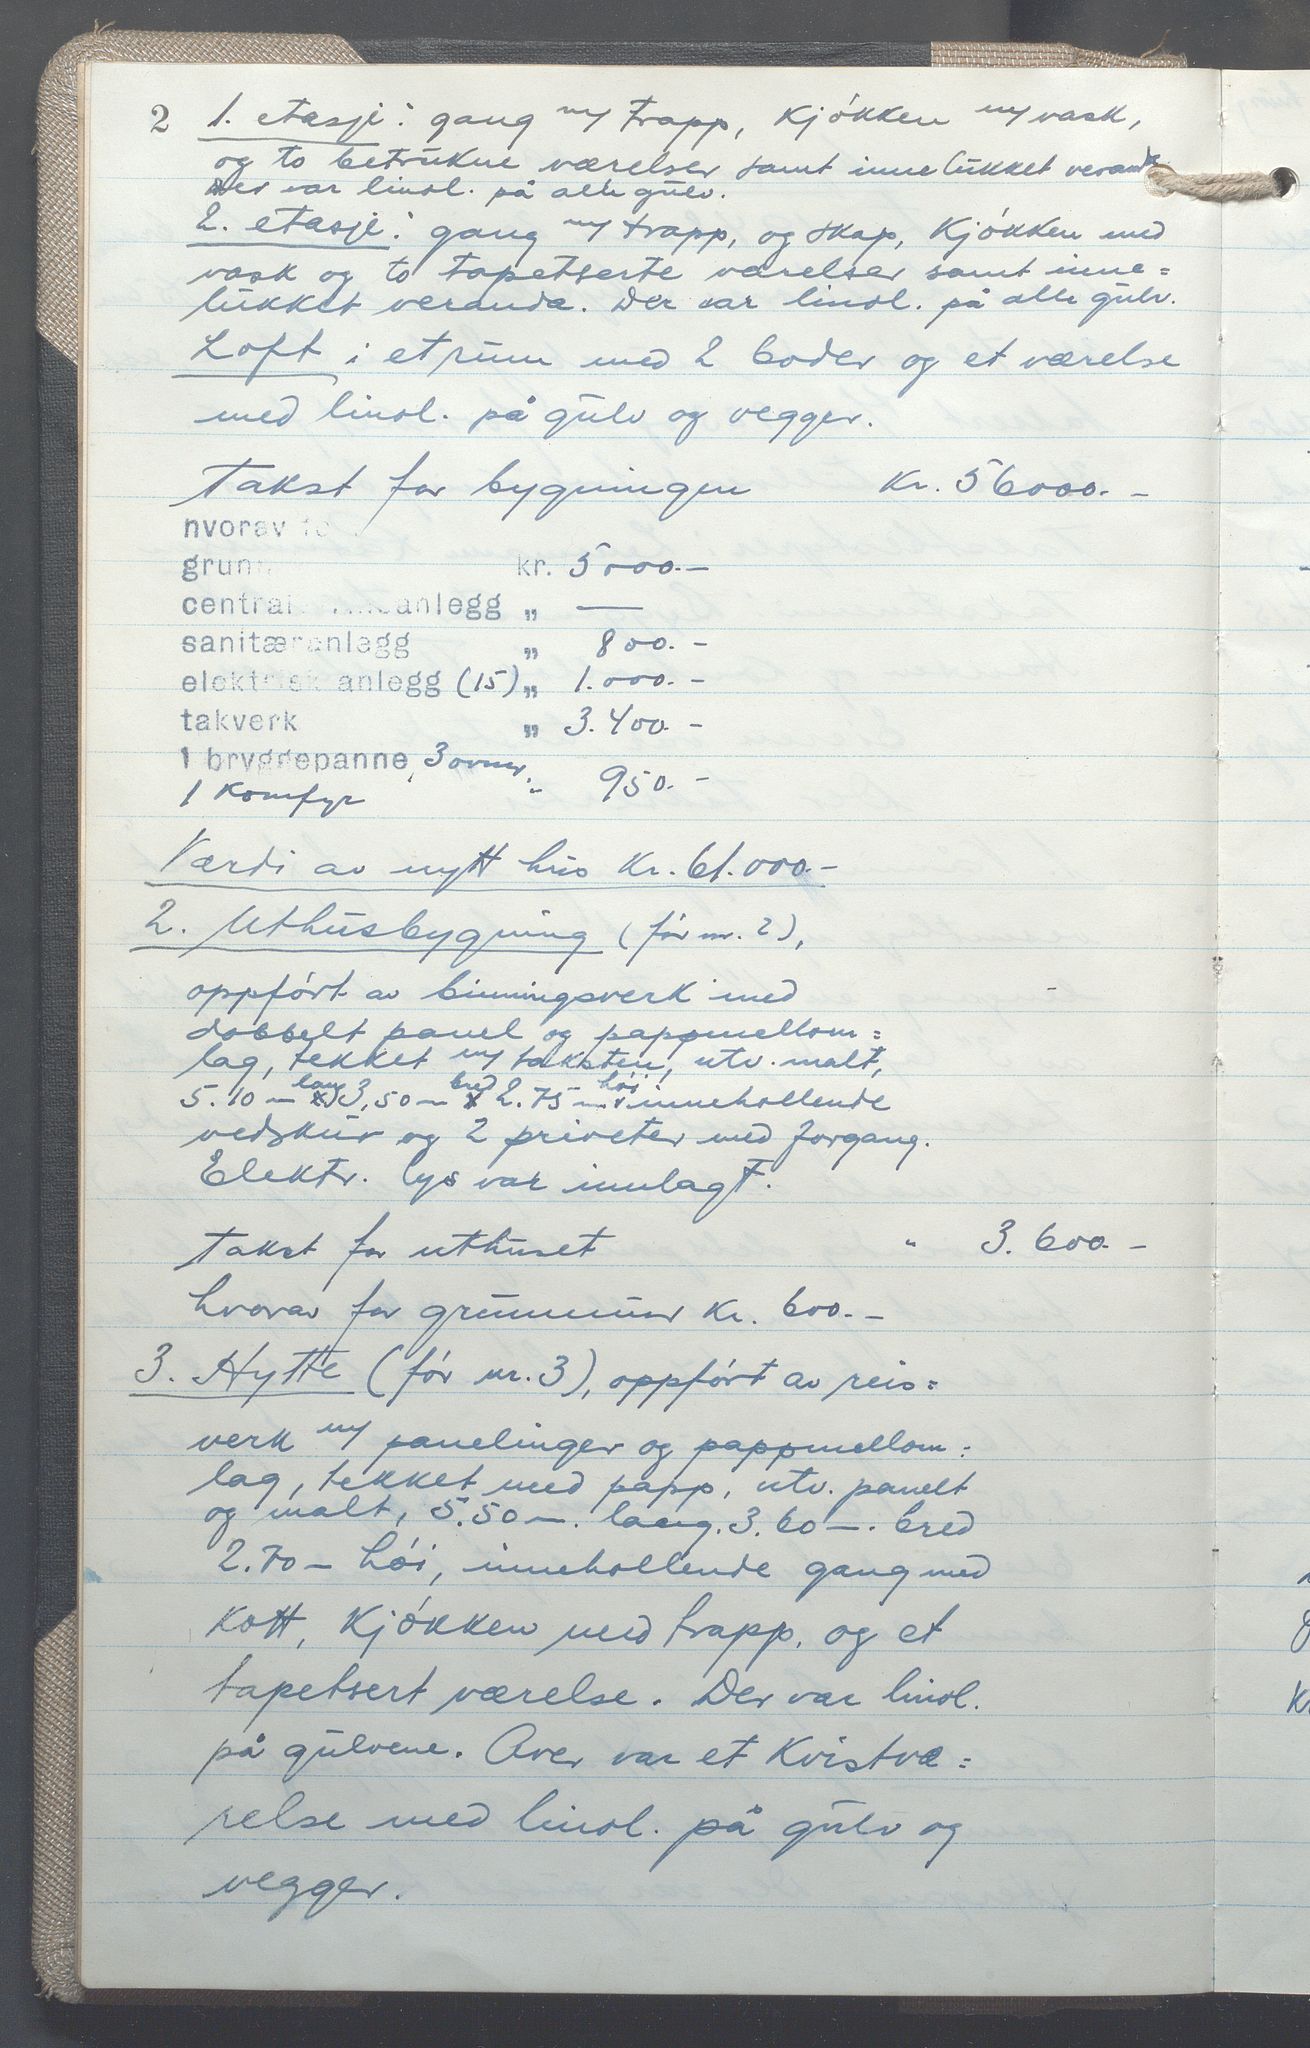 2
1. etasje: gang m/ trapp, kjøkken m/ vask,
og to betrukne værelser samt inne lukket veranda
Der var linol. på alle gulv.
2. etasje: gang m/ trapp, og skap, kjøkken med
vask og to tapetserte værelser samt inne=
lukket veranda. Der var linol. på alle gulv.
Loft i et rum med 2 boder og et værelse
med linol. på gulv og vegger.
Takst for bygningen Kr. 56000.-
hvorav fo
grun kr. 5000.-
central anlegg „ —
sanitæranlegg „ 800.-
elektrisk anlegg (15) „ 1.000.-
takverk „ 3.400.-
1 bryggepanne, 3 ovner,
1 komfyr „ 950.-
Værdi av nytt hus Kr. 61.000.-
2. Uthusbygning (før nr. 2),
oppført av binningsverk med
dobbelt panel og pappmellom=
lag, tekket m/ taksten, utv. malt,
5.10 m lang 3,50 m bred 2.75 m høi innehollende
vedskur og 2 priveter med forgang.
Elektr. lys var innlagt.
Takst for uthuset „ 3.600.-
hvorav for grunnmur Kr. 600.-
3. Hytte (før nr. 3), oppført av reis=
verk m/ panelinger og pappmellom=
lag, tekket med papp, utv. panelt
og malt, 5.50 m. lang. 3.60 m. bred
2.70 m høi, innehollende gang med
kott, kjøkken med trapp, og et
tapetsert værelse. Der var linol.
på gulvene. Over var et kvistvæ=
relse med linol. på gulv og
vegger.